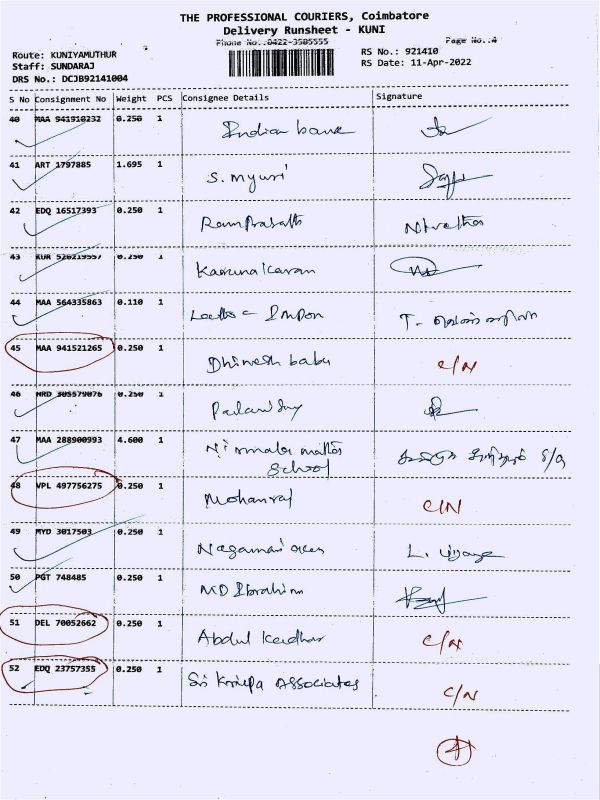 THE PROFESSIONAL COURIERS, Coimbatore
Delivery Runsheet - KUNI
Phone No.:0422-3505555 Page No.:4
Route: KUNIYAMUTHUR RS No.: 921410
Staff: SUNDARAJ RS Date: 11-Apr-2022
DRS No.: DCJB92141004
S No Consignment No Weight PCS Consignee Details Signature
40 MAA 941910232 0.250 1 Indian bank
41 ART 1797885 1.695 1 S. Myuri
42 EDQ 16517393 0.250 1 Ramprasath
43 KUR 526219557 0.250 1 Karunakaran
44 MAA 564335863 0.110 1
45 MAA 941521265 0.250 1 Dhinesh babu C/N
46 NRD 305579076 0.250 1
47 MAA 288900993 4.600 1 Nirmala
School
48 VPL 497756275 0.250 1 Mohanraj C/N
49 MYD 3017503 0.250 1 L.
50 PGT 748485 0.250 1 MD Ibrahim
51 DEL 70052662 0.250 1 Abdul Kadhar C/N
52 EDQ 23757355 0.250 1 Sri Associates C/N